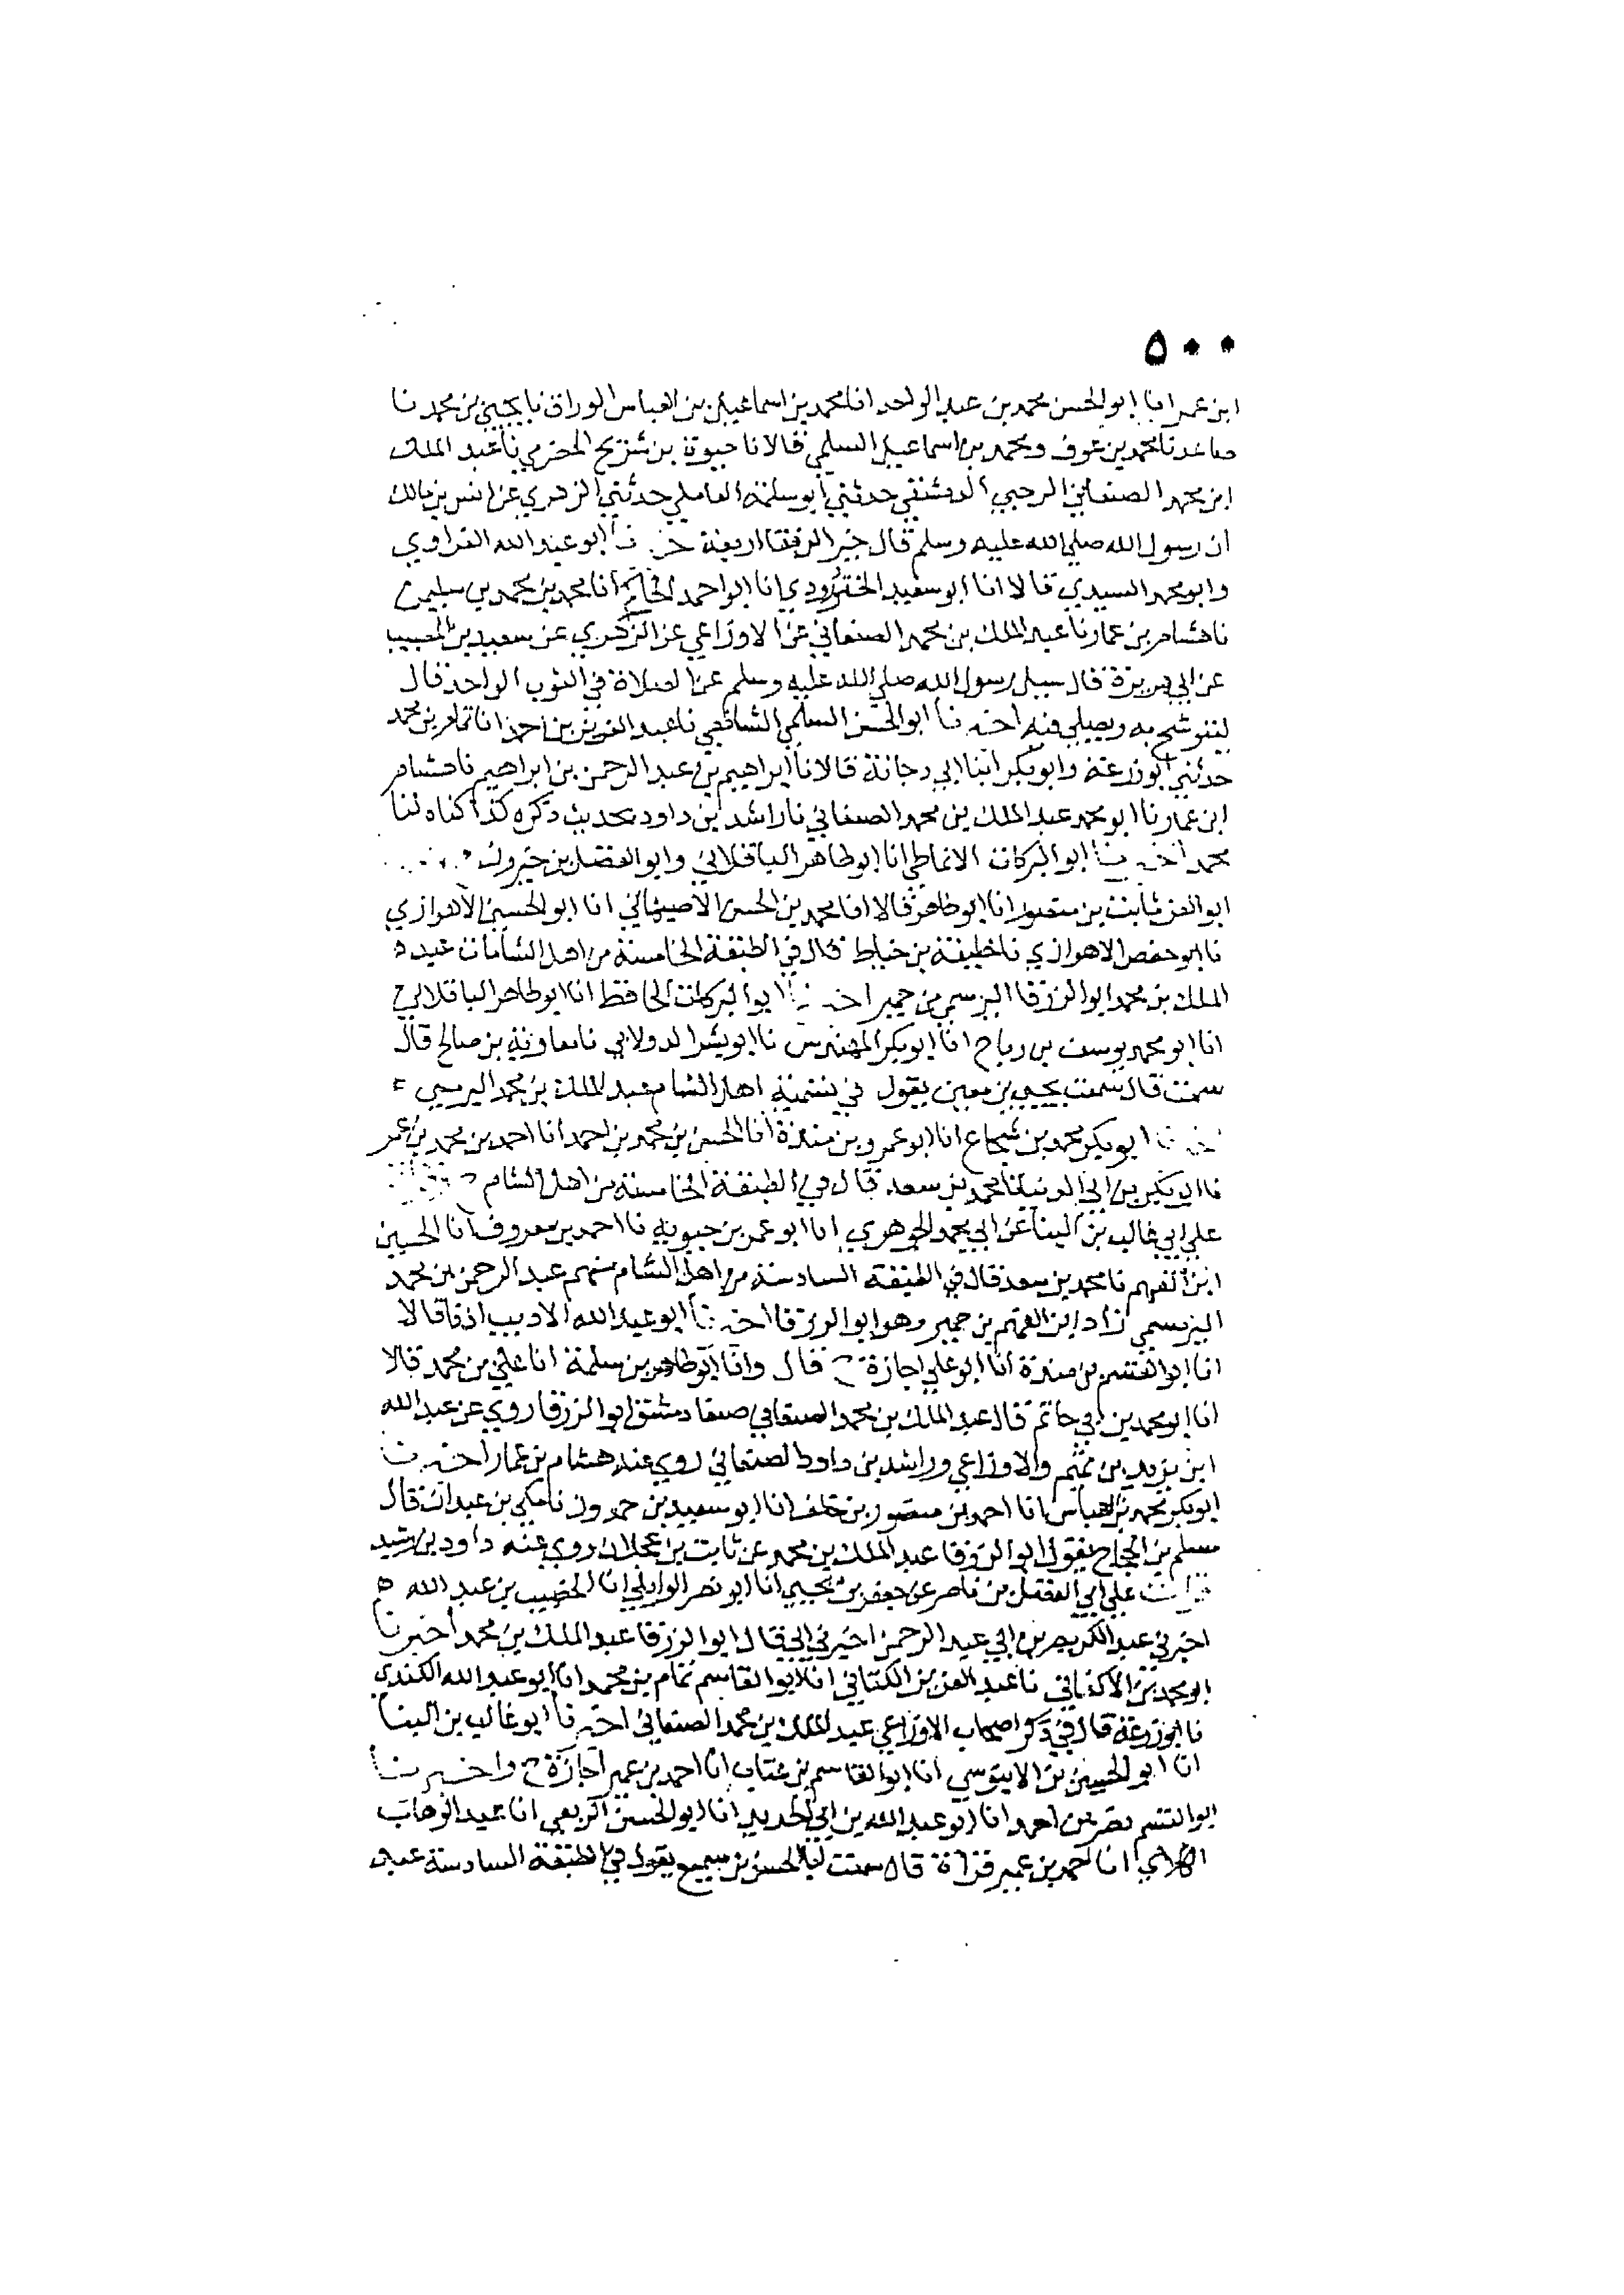 ٥٠٠
ابن عمر انا ابو الحسن محمد بن عبد الواحد انا محمد بن اسماعيل بن العباس الوراق نا يحيى بن محمد نا
صاعد نا محمد بن عوف ومحمد بن اسماعيل السلمي قالا نا حيوة بن شريح الحضرمي نا عبد الملك
ابن محمد الصنعاني الرحبي الدمشقي حدثني ابو سلمة العاملي حدثني الزهري عن انس بن مالك
ان رسول الله صلي الله عليه وسلم قال خير الرفقا اربعة اخبرنا ابو عبد الله الفراوي
وابو محمد السيدي قالا انا ابو سعيد الخنزرودي انا ابو احمد الحاكم انا محمد بن محمد بن سليمن
نا هشام بن عمار نا عبد الملك بن محمد الصنعاني عن الاوزاعي عن الزهري عن سعيد بن المسيب
عن ابي هريرة قال سيل رسول الله صلي الله عليه وسلم عن الصلاة في الثوب الواحد فقال
ليتوشح به ويصلي فيه اخبرنا ابو الحسن السلمي الشافعي نا عبد العزيز بن احمد انا تمام بن محمد
حدثني ابو زرعة وابو بكر ابنا ابي دجانة قالا نا ابراهيم بن عبد الرحمن بن ابراهيم نا هشام
ابن عمار نا ابو محمد عبد الملك بن محمد الصنعاني نا راشد بن داود بحديث ذكره كذا كناه لنا
محمد اخبرنا ابو البركات الانماطي انا ابو طاهر الباقلاني وابو الفضل بن خيرون
ابو العز ثابت بن منصور انا ابو طاهر قالا انا محمد بن الحسن الاصبهاني انا ابو الحسين الاهوازي
نا ابو حفص الاهوازي نا خليفة بن خياط قال في الطبقة الخامسة من اهل الشامات عبد
الملك بن محمد ابو الزرقا البرسمي من حمير اخبرنا ابو البركات الحافظ انا ابو طاهر الباقلاني
انا ابو محمد يوسف بن رباح انا ابو بكر المهندس نا ابو بشر الدولابي نا معاوية بن صالح قال
سمعت قال سمعت يحيى بن معين يقول في تسمية اهل الشام عبد الملك بن محمد البرسمي
اخبرنا ابو بكر محمد بن شجاع انا ابو عمرو بن مندة انا الحسن بن محمد بن احمد انا احمد بن محمد بن عمر
نا ابو بكر بن ابي الدنيا نا محمد بن سعد قال في الطبقة الخامسة من اهل الشام
علي ابي غالب بن البنا عن ابي محمد الجوهري انا ابو عمر بن حيوية نا احمد بن معروف انا الحسين
ابن الفهم نا محمد بن سعد قال في الطبقة السادسة من اهل الشام منهم عبد الرحمن بن محمد
البرسمي زاد ابن الفهم من حمير وهو ابو الزرقا اخبرنا ابو عبد الله الاديب اذنا قالا
انا ابو القسم بن مندة انا ابو علي اجازة ح قال وانا ابو طاهر بن سلمة انا علي بن محمد قالا
انا ابو محمد بن ابي حاتم قال عبد الملك بن محمد الصنعاني صنعا دمشق ابو الزرقا روي عن عبد الله
ابن يزيد بن تميم والاوزاعي وراشد بن داود الصنعاني روي عنه هشام بن عمار اخبرنا
ابو بكر محمد بن العباس انا احمد بن منصور بن خلف انا ابو سعيد بن حمدون نا مكي بن عبدان قال
مسلم بن الحجاج يقول ابو الزرقا عبد الملك بن محمد عن ثابت بن عجلان روي عنه داود بن رشيد
قرات علي ابي الفضل بن ناصر عن جعفر بن يحيي انا ابو نصر الوايلي انا الخصيب بن عبد الله
اخبرني عبد الكريم بن ابي عبد الرحمن اخبرني ابي قال ابو الزرقا عبد الملك بن محمد اخبرنا
ابو محمد بن الاكفاني نا عبد العزيز الكتاني انا ابو القاسم تمام بن محمد انا ابو عبد الله الكندي
نا ابو زرعة قال في ذكر اصحاب الاوزاعي عبد الملك بن محمد الصنعاني اخبرنا ابو غالب بن البنا
انا ابو الحسين بن الابنوسي انا ابو القاسم بن عتاب انا احمد بن عمير اجازة ح واخبرنا
ابو القسم نصر بن احمد انا ابو عبد الله بن ابي الحديد انا ابو الحسن الربعي انا عبد الوهاب
الكلابي انا احمد بن عمير قراة قال سمعت ابا الحسن بن سميع يقول في الطبقة السادسة عبد